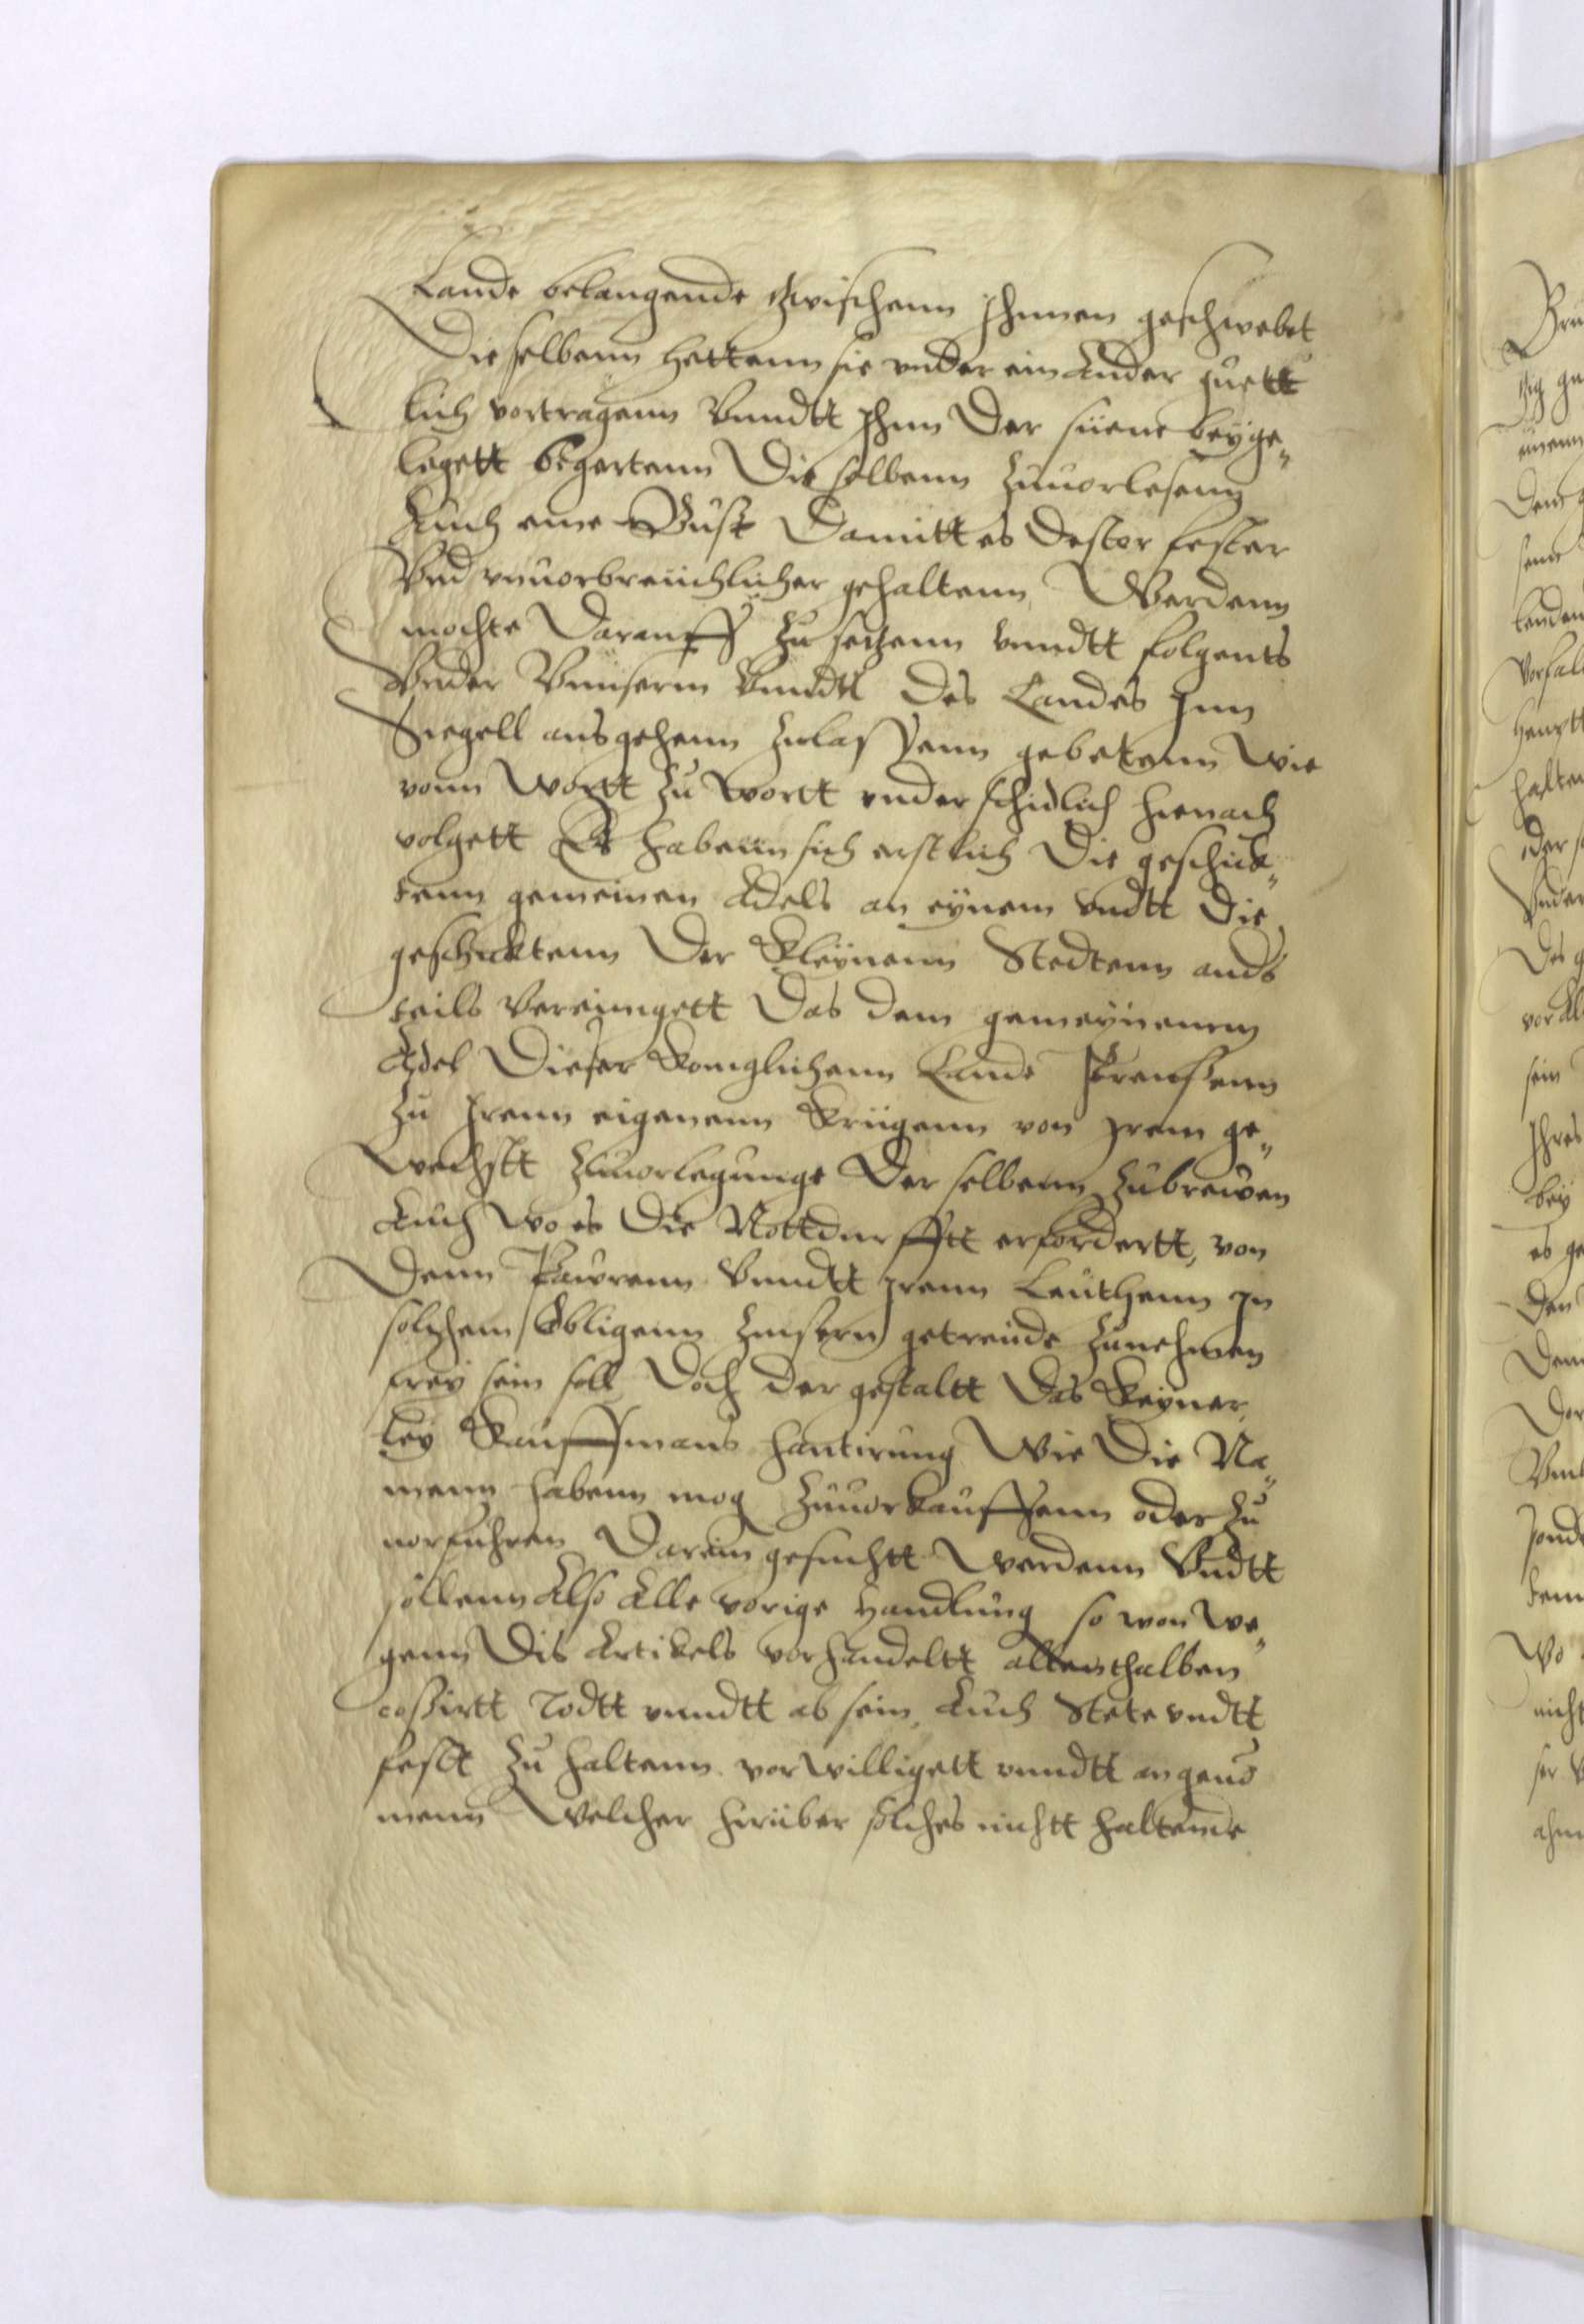 Lande belangende tzwischenn Ihnnen geschwebet
Die selbenn hettenn sie vnder ein Ander guett
lich vortragenn Vnndtt Ihnn Der süene beyge„
legett begertenn Die selbenn zuuorlesenn
Auch eine Bust Damitt es Dester fester
Vnd vnuorbreüchlicher gehaltenn Werdenn
mochte Darauff zu setzenn vnndtt folgents
Vnder Vnnserm Vnndtt Des Landes Inn
Siegell ausgehenn zulassenn gebetenn Wie
vonn Wortt zu Wortt vnderschidlich hirnach
volgett Es habenn sich erstlich Die geschick„
tenn gemeinen Adels an eynem vndtt Die
geschicktenn Der Kleynenn Stedtenn ands
teils Vereinigett Das dem gemeynenn
Adel Dieser Koniglichenn Lande Preussenn
zu Irenn eigenenn Krügenn von Irem ge„
Wechstt zuuorlegunge Der selbenn zubrewen
Auch wo es Die Nottdurfftt erfordertt, von
Denn Pawrenn Vnndtt Irenn Leuthenn In
solchem Obligenn getreide zunehmen
frey sein soll Doch der gestaltt Das Keyner
ley Kauffmans hantirung Wie Die Na„
menn habenn mog zuuorkauffenn oder zu
vorfuhren Darein gesuchtt Werdenn Vndtt
sollenn Also Alle vorige Handlung so von We„
genn Dis Artikels vorhandeltt allenthalben
cassirtt Todtt vnndtt ab sein, Auch Stete vndtt
festt zu haltenn vorwilligett vnndtt angeno
menn Welcher hirüber solches nichtt haltenne